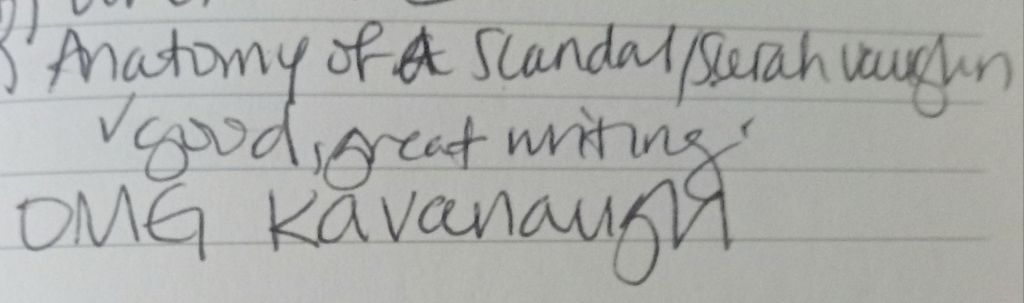 Anatomy of A Scandal/Sarah Vaughn
✓ good, great writing
OMG Kavanaugh